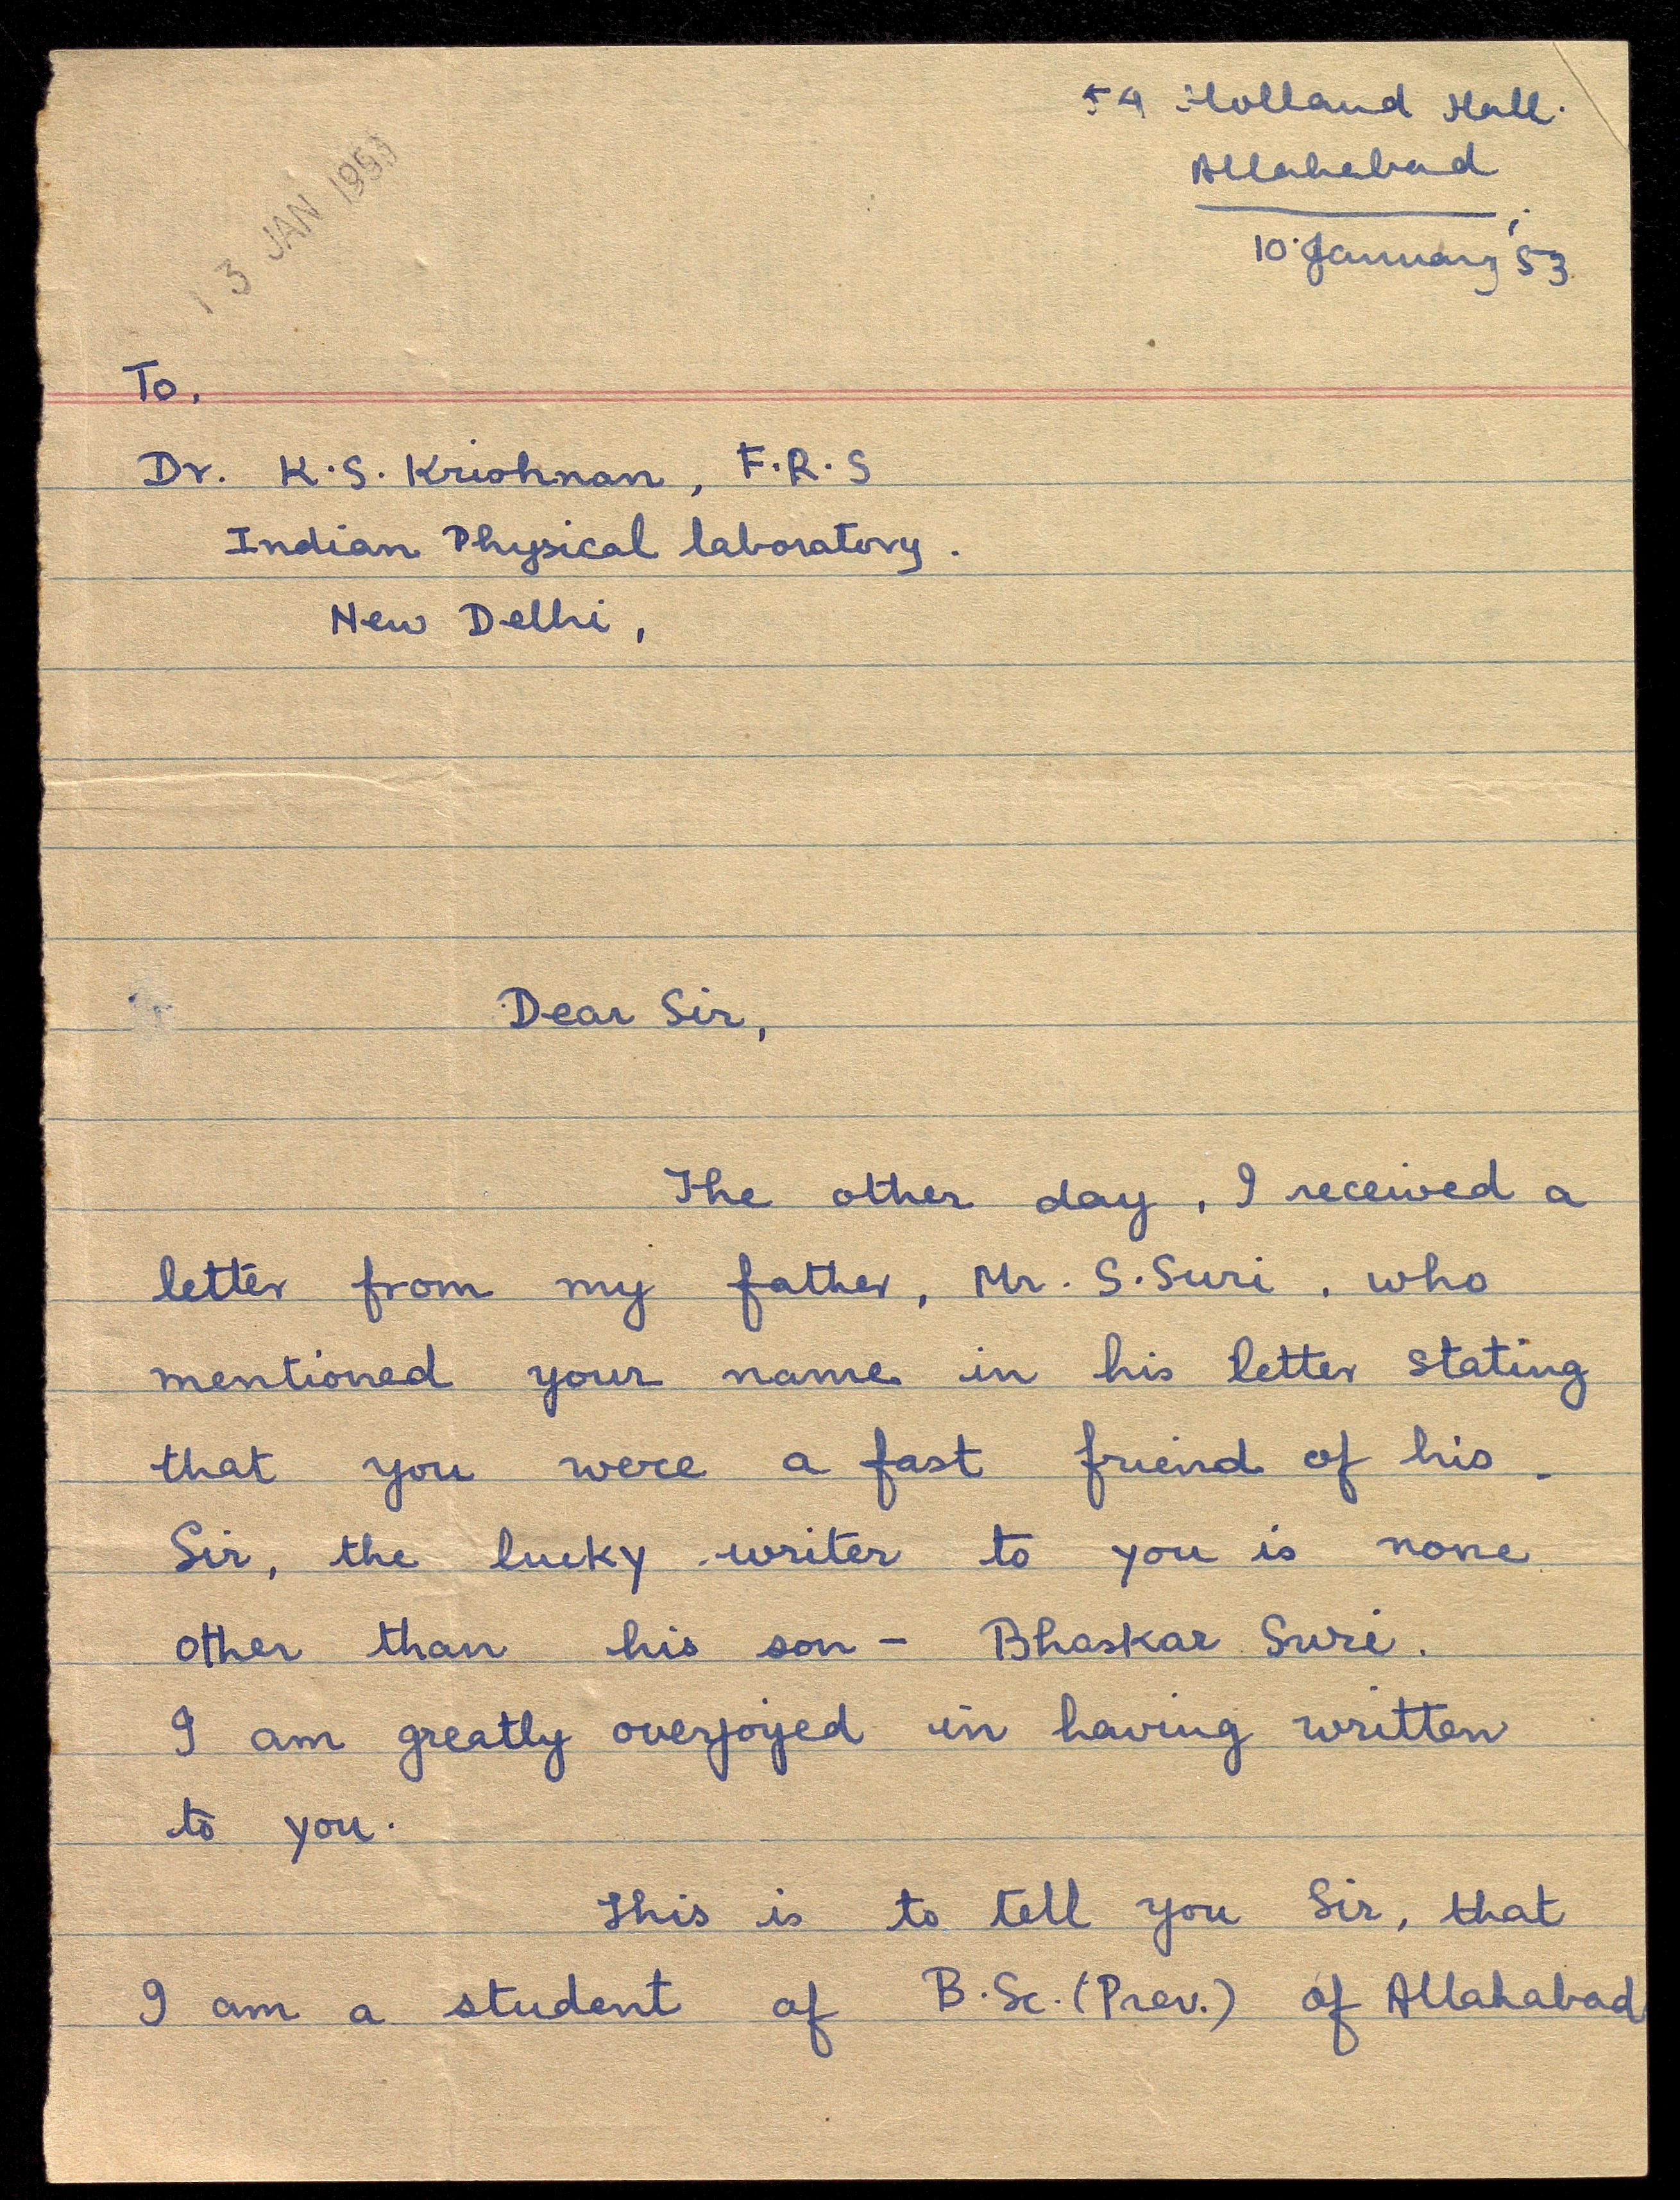 54 Holland Hall.
Allahabad
10 January '53
13 JAN 1953
To,
Dr. K.S. Krishnan, F.R.S
Indian Physical laboratory.
New Delhi,
Dear Sir,
The other day, I received a
letter from my father, Mr. S. Suri, who
mentioned your name in his letter stating
that you were a fast friend of his.
Sir, the lucky writer to you is none
other than his son - Bhaskar Suri.
I am greatly overjoyed in having written
to you.
This is to tell you Sir, that
I am a student of B.Sc. (Prev.) of Allahabad